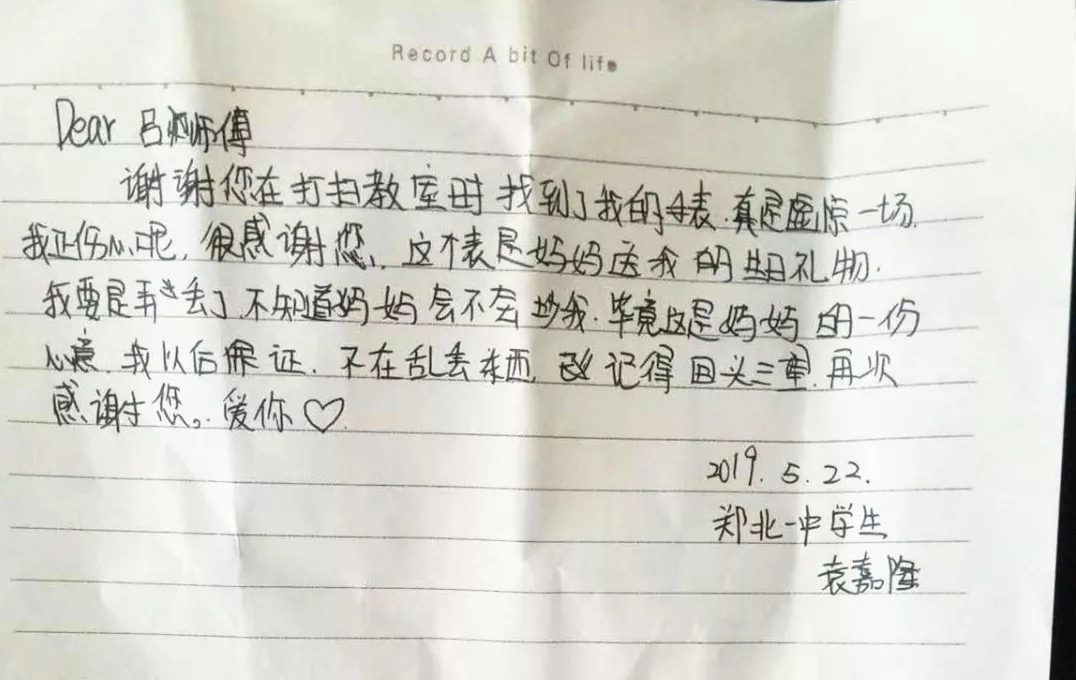 Record A bit Of life
Dear 吕师傅
谢谢您在打扫教室时找到了我的手表.真是虚惊一场.
我正伤心呢,很感谢您,这个表是妈妈送我的生日礼物.
我要是弄丢了,不知道妈妈会不会抄我.毕竟这是妈妈的一份
心意,我以后保证.不在乱丢东西,记得回头三看.再次
感谢您。爱你♡
2019.5.22.
郑北一中学生
袁嘉隆